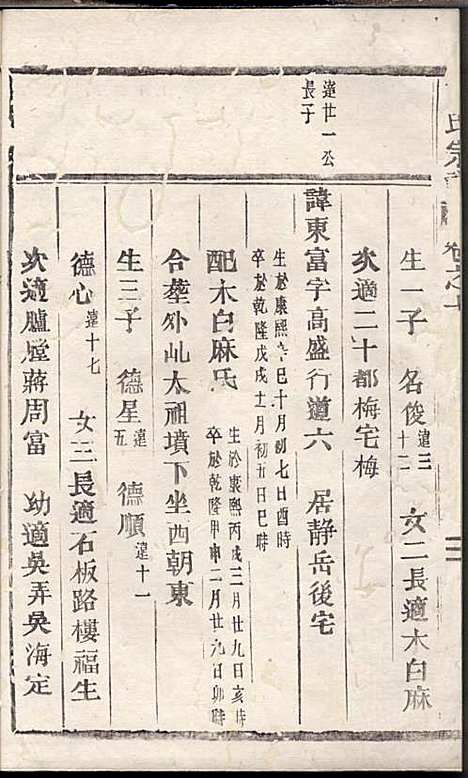 氏宗
卷之十
生一子 名俊達三十二 女二長適木白麻
次適二十都梅宅梅
達廿一公長子
諱東富字高盛行道六 居静岳後宅
生於康熙辛巳十月初七日酉時
卒於乾隆戊戌十一月初五日巳時
配木白麻氏
生於康熙丙戌三月廿九日亥時
卒於乾隆甲申二月廿九日卯時
合塟外屾太祖墳下坐西朝東
生三子 德星達五 德順達十一
德心達十七 女三長適石板路樓福生
次適臚膛蔣周富 幼適吳弄吳海定